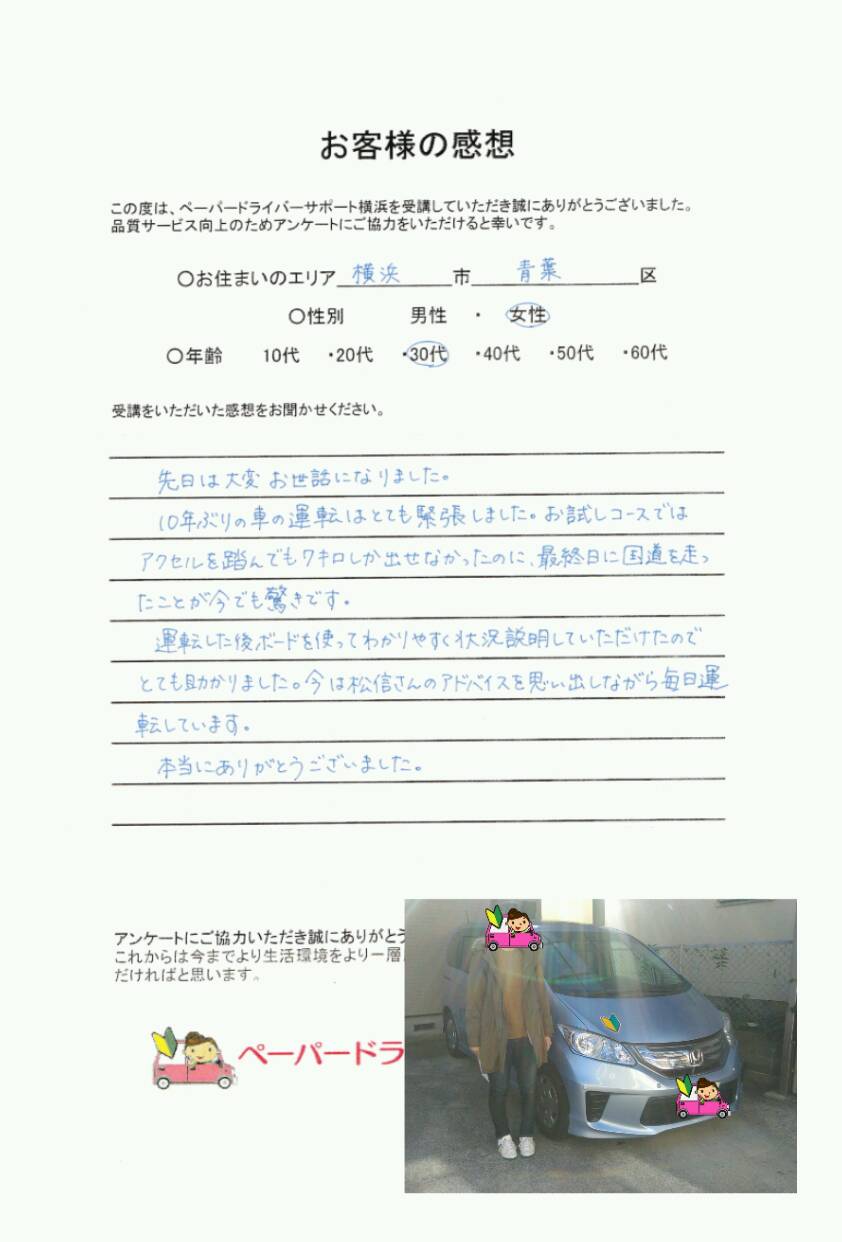 お客様の感想
この度は、ペーパードライバーサポート横浜を受講していただき誠にありがとうございました。
品質サービス向上のためアンケートにご協力をいただけると幸いです。
○お住まいのエリア 横浜 市 青葉 区
○性別 男性 ・ 女性
○年齢 10代 ・20代 ・30代 ・40代 ・50代 ・60代
受講をいただいた感想をお聞かせください。
先日は大変お世話になりました。
10年ぶりの車の運転はとても緊張しました。お試しコースでは
アクセルを踏んでも7キロしか出せなかったのに、最終日に国道を走っ
たことが今でも驚きです。
運転した後ボードを使ってわかりやすく状況説明していただけたので
とても助かりました。今は松信さんのアドバイスを思い出しながら毎日運
転しています。
本当にありがとうございました。
アンケートにご協力いただき誠にありがとう
これからは今までより生活環境をより一層
だければと思います。
ペーパードラ